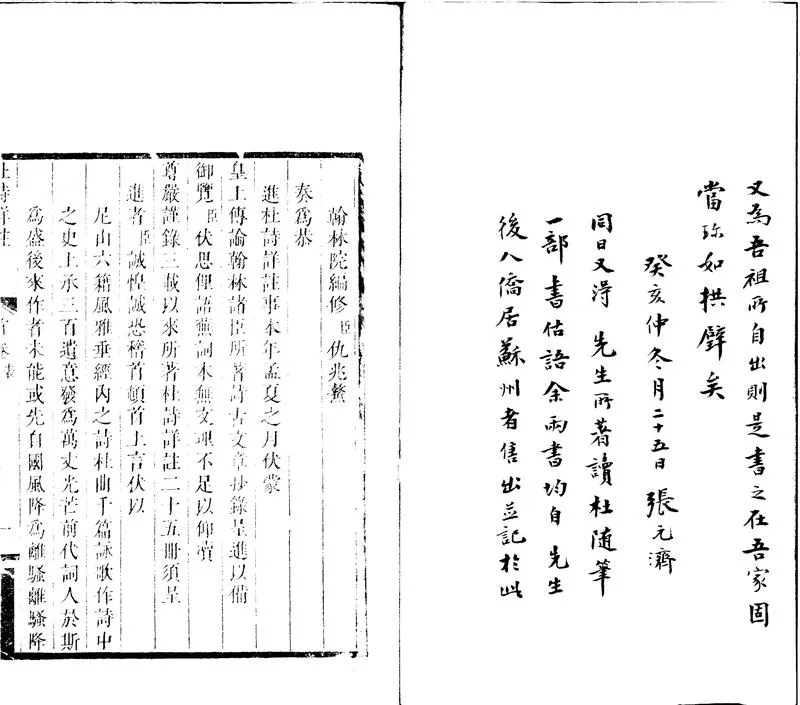 又為吾祖所自出則是書之在吾家固
當珍如拱璧矣
癸亥仲冬月二十五日張元濟
同日又得 先生所著讀杜随筆
一部 書估語余兩書均自 先生
後人僑居蘇州者售出並記於此
翰林院編修臣仇兆鰲
奏為恭
進杜詩詳註事本年孟夏之月伏蒙
皇上傳諭翰林諸臣所著詩古文章抄錄呈進以備
御覽臣伏思俚語蕪詞本無文理不足以仰瀆
尊嚴謹錄三載以來所著杜詩詳註二十五冊須呈
進者臣誠惶誠恐稽首頓首上言伏以
尼山六籍風雅垂經內之詩杜曲千篇詠歌作詩中
之史上承三百遺意發為萬丈光芒前代詞人於斯
為盛後來作者未能或先自國風降為離騷離騷降
杜詩詳註
首卷表
一